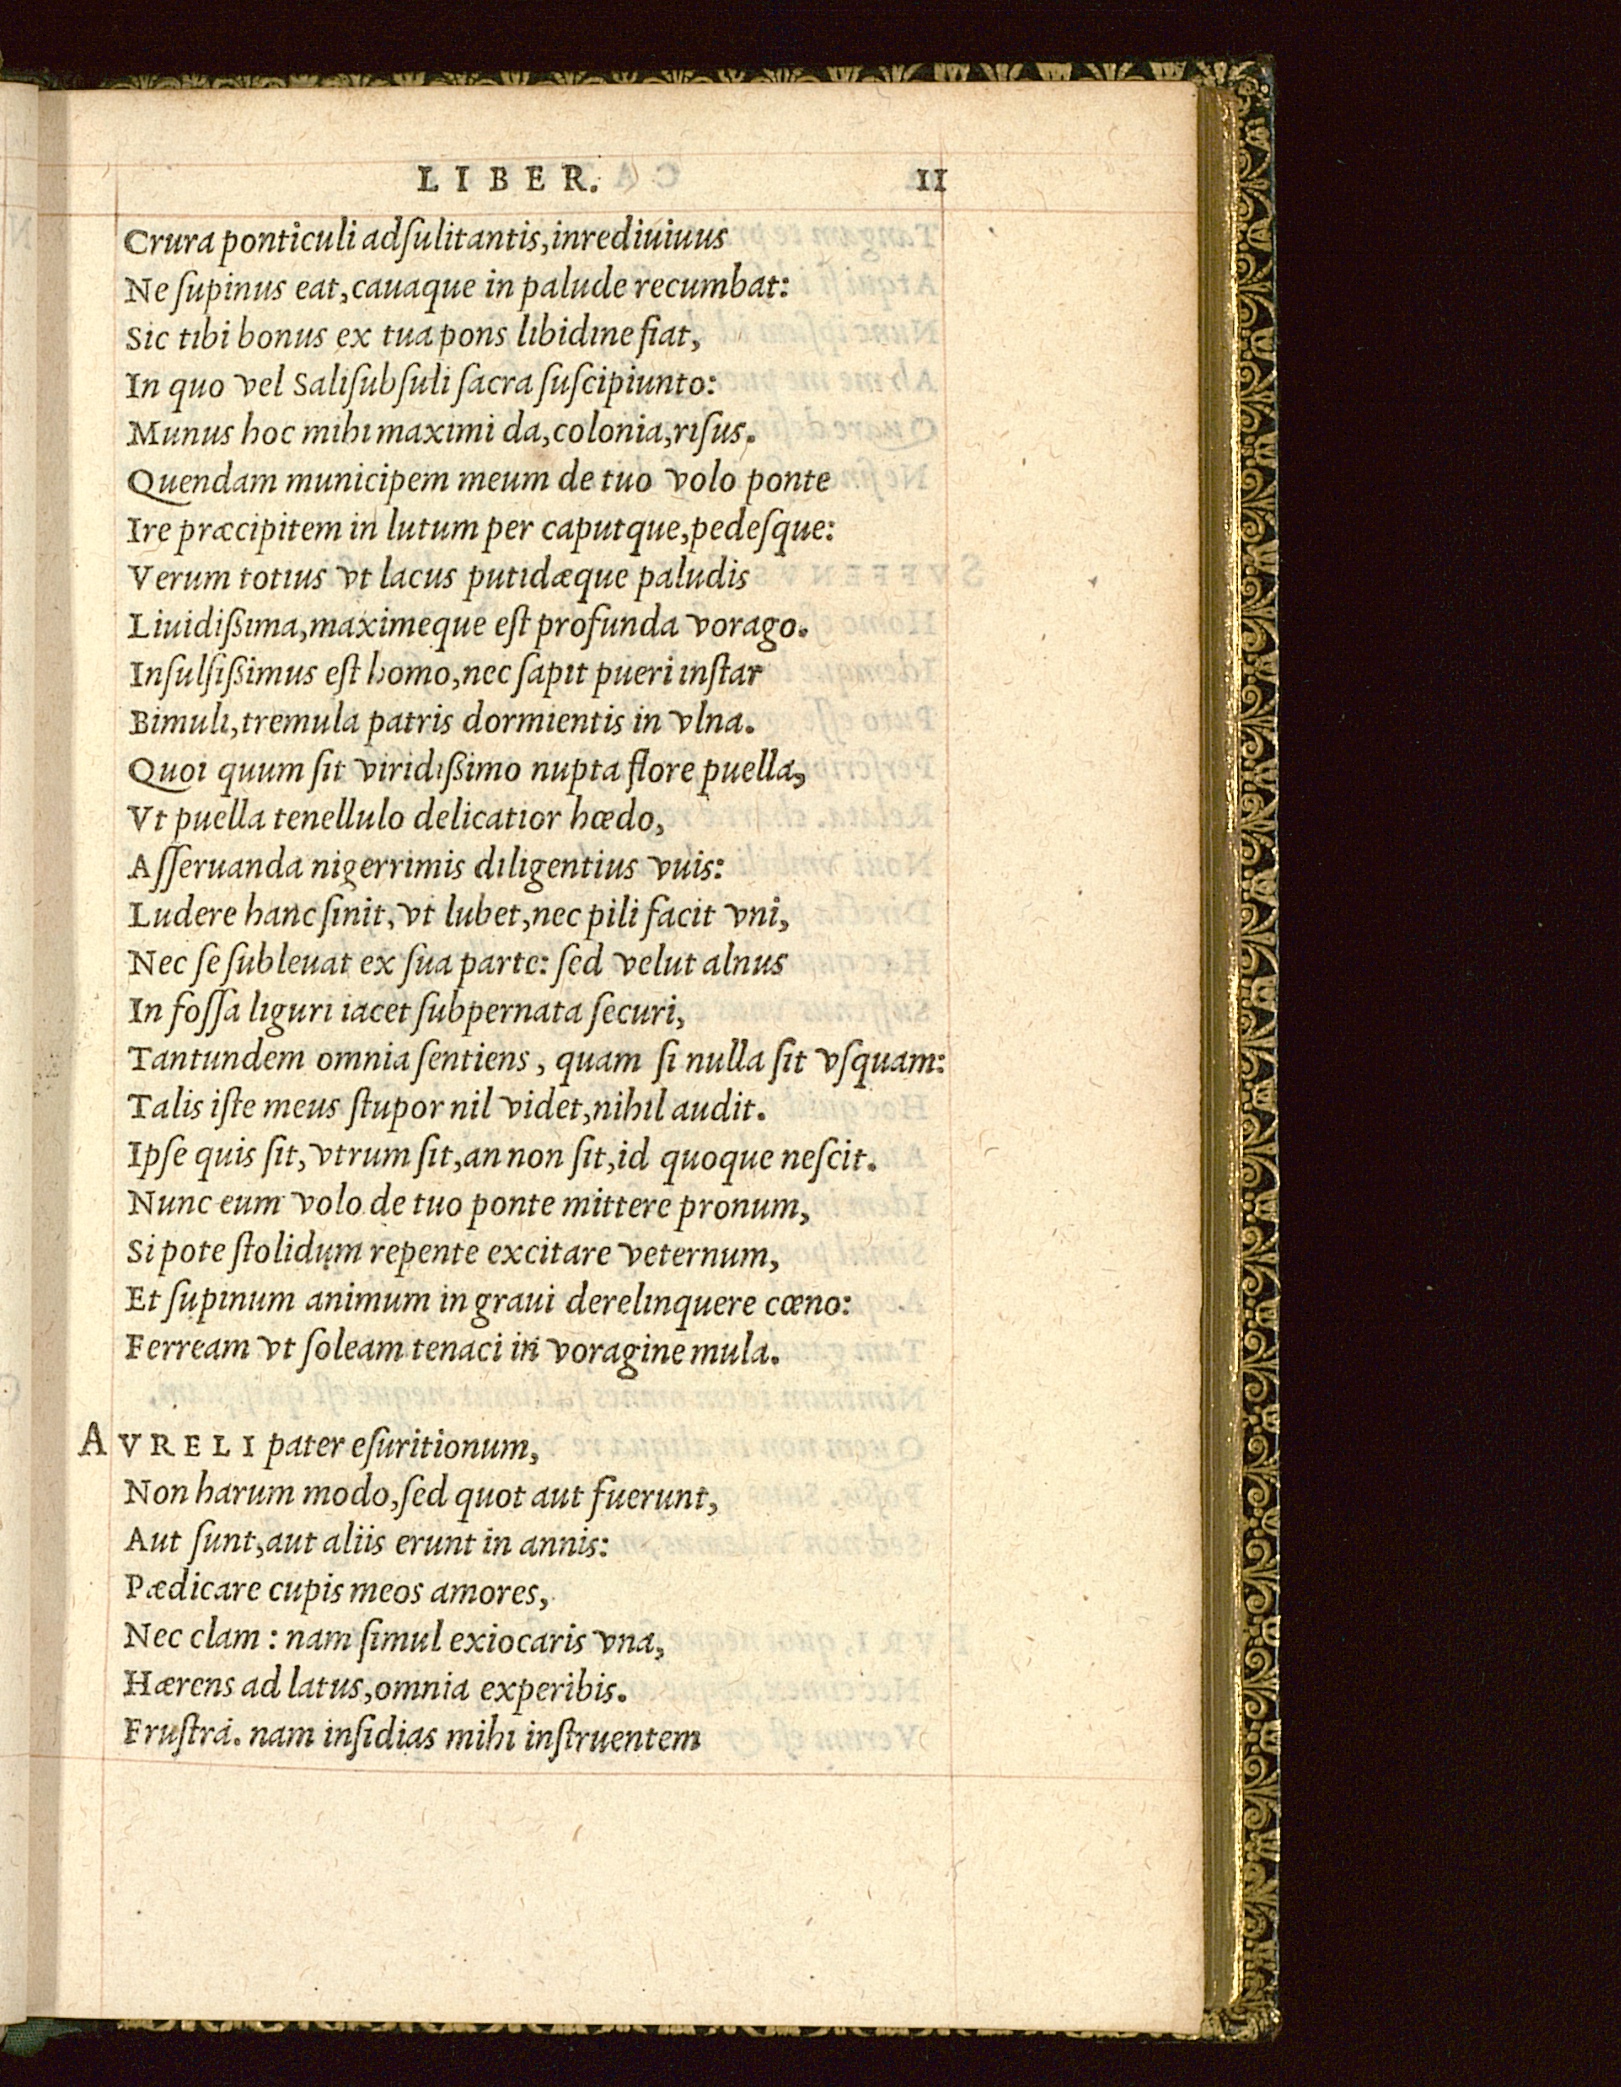 LIBER. 11
Crura ponticuli adſulitantis,inrediuiuus
Ne ſupinus eat,cauaque in palude recumbat:
Sic tibi bonus ex tua pons libidine fiat,
In quo vel Saliſubſuli ſacra ſuſcipiunto:
Munus hoc mihi maximi da,colonia,riſus.
Quendam municipem meum de tuo volo ponte
Ire præcipitem in lutum per caputque,pedeſque:
Verum totius vt lacus putidæque paludis
Liuidißima,maximeque eſt profunda vorago.
Inſulſißimus eſt homo,nec ſapit pueri inſtar
Bimuli,tremula patris dormientis in vlna.
Quoi quum ſit viridißimo nupta flore puella,
Vt puella tenellulo delicatior hœdo,
Aſſeruanda nigerrimis diligentius vuis:
Ludere hanc ſinit, vt lubet,nec pili facit vni,
Nec ſe ſubleuat ex ſua parte: ſed velut alnus
In foſſa liguri iacet ſubpernata ſecuri,
Tantundem omnia ſentiens, quam ſi nulla ſit vſquam:
Talis iſte meus ſtupor nil videt,nihil audit.
Ipſe quis ſit, vtrum ſit,an non ſit,id quoque neſcit.
Nunc eum volo de tuo ponte mittere pronum,
Si pote ſtolidum repente excitare veternum,
Et ſupinum animum in graui derelinquere cœno:
Ferream vt ſoleam tenaci in voragine mula.
AVRELI pater eſuritionum,
Non harum modo,ſed quot aut fuerunt,
Aut ſunt,aut aliis erunt in annis:
Pædicare cupis meos amores,
Nec clam: nam ſimul exiocaris vna,
Hærens ad latus,omnia experibis.
Fruſtrá. nam inſidias mihi inſtruentem